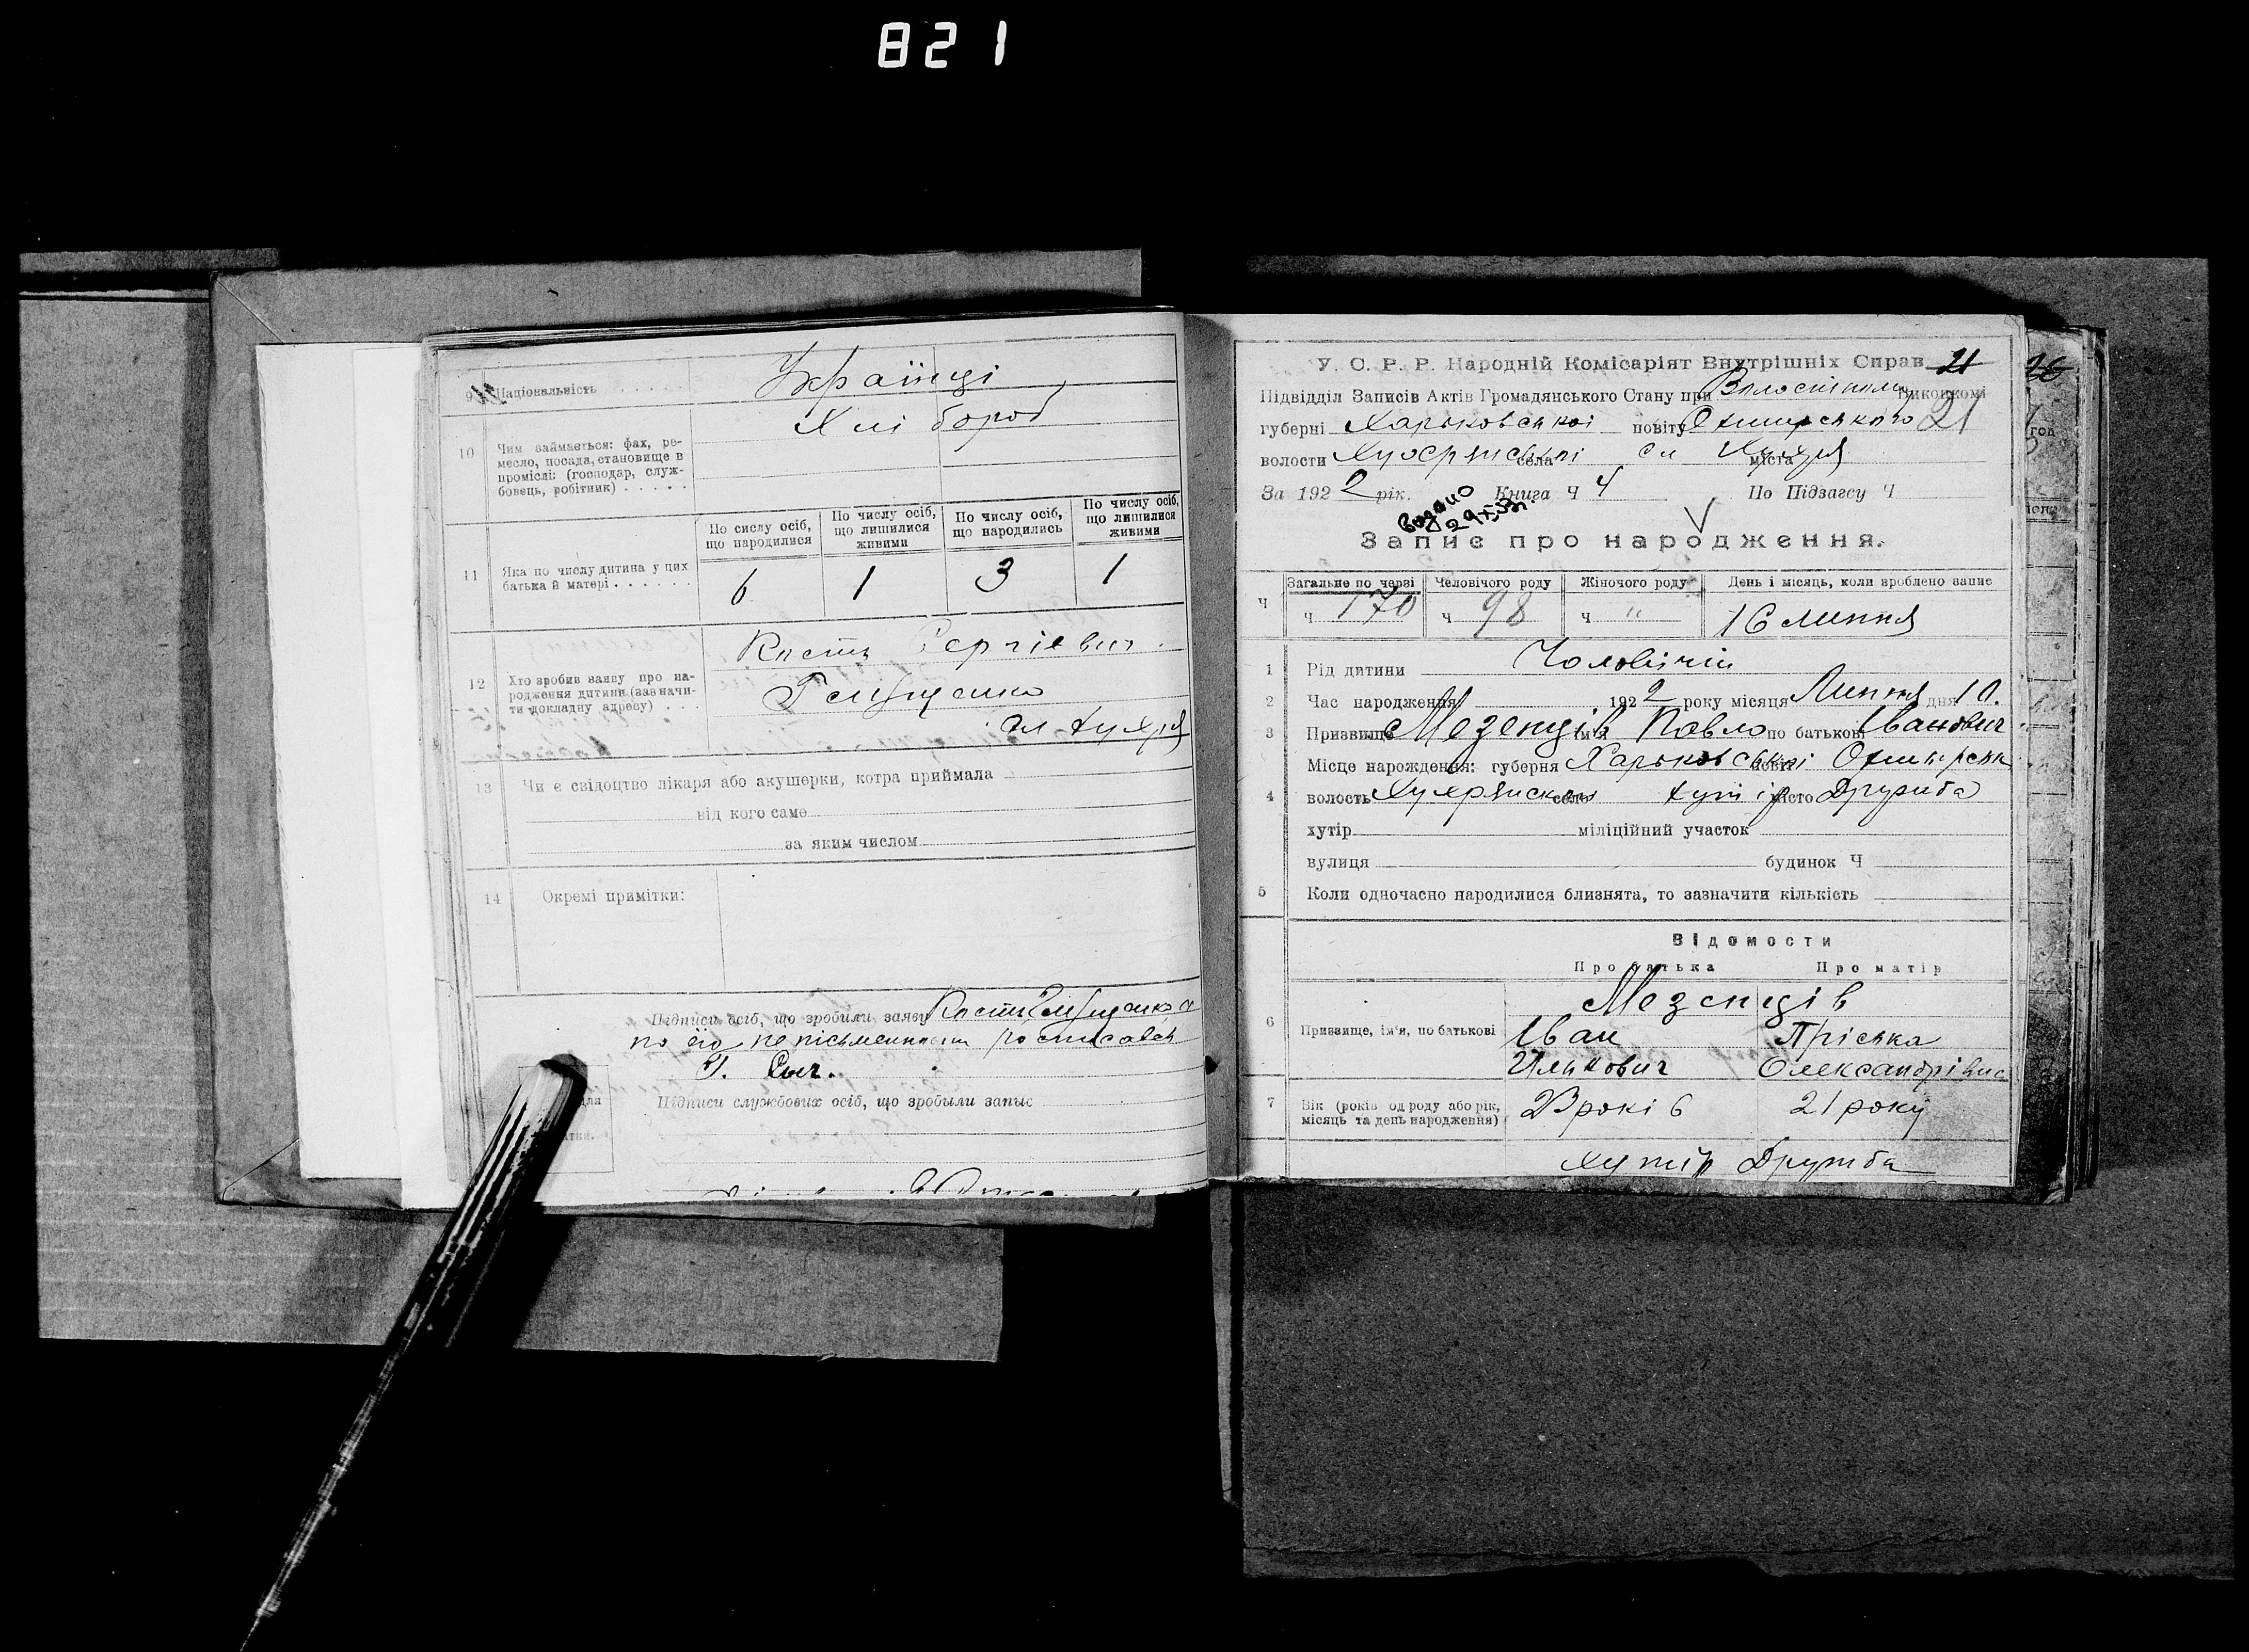 821
9 Національність . . . . . Українці
10 Чим займається: фах, ре-
месло, посада, становище в
промислі: (господар, служ-
бовець, робітник) . . . . .
Хлібороб
По сислу осіб, що народилися
По числу осіб, що лишилися живими
По числу осіб, що народились
По числу осіб, що лишилися живими
11 Яка по числу дитина у цих
батька й матері . . . . . .
6 1 3 1
12 Хто зробив заяву про на-
родження дитини (зазначи-
ти докладну адресу) . . .
Кость Сергієвич
сл Хухря
13 Чи є свідоцтво лікаря або акушерки, котра приймала
від кого саме
за яким числом
14 Окремі примітки:
Підписи осіб, що зробили заяву Кость
по его
Підписи службових осіб, що зробыли запыс
У. С. Р. Р. Народній Комісаріят Внутрішніх Справ 21
Підвідділ Записів Актів Громадянського Стану при Виконкомі
губерні Харьковської повіту 21
волости села сл міста Хухря
За 1922 рік. Книга Ч 4 По Підзагсу Ч
видано
Запис про народження.
Загальне по черзі Человічого роду Жіночого роду День і місяць, коли зроблено запис
Ч ч 170 ч 98 ч " 16 липня
1 Рід дитини Чоловічій
2 Час народження 1922 року місяця Липня дня 10.
3 Призвище Мезенців ім'я Павло по батькові Іванович
Місце нарождення: губерня Харьковської повіт
4 волость село хутір місто Дружба
хутір міліційний участок
вулиця будинок Ч
5 Коли одночасно народилися близнята, то зазначити кількість
Відомости
Про батька Про матір
6 Призвище, ім'я, по батькові
Мезенців
Іван Пріська
Илькович Олександрівна
7 Вік (років од роду або рік,
місяць та день народження)
23 років 21 року
хутір Дружба